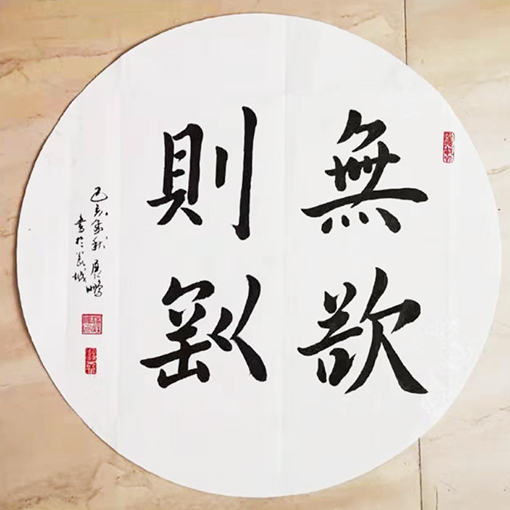 無欲
則剛
己亥年秋
書於